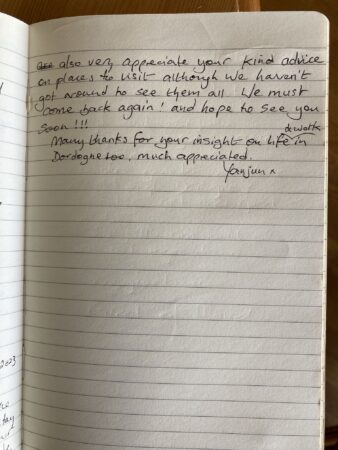 also very appreciate your kind advice
on places to visit although we haven't
got around to see them all. We must
come back again! and hope to see you
soon!!!
& work
Many thanks for your insight on life in
Dordogne too, much appreciated.
Yanjun x
2023